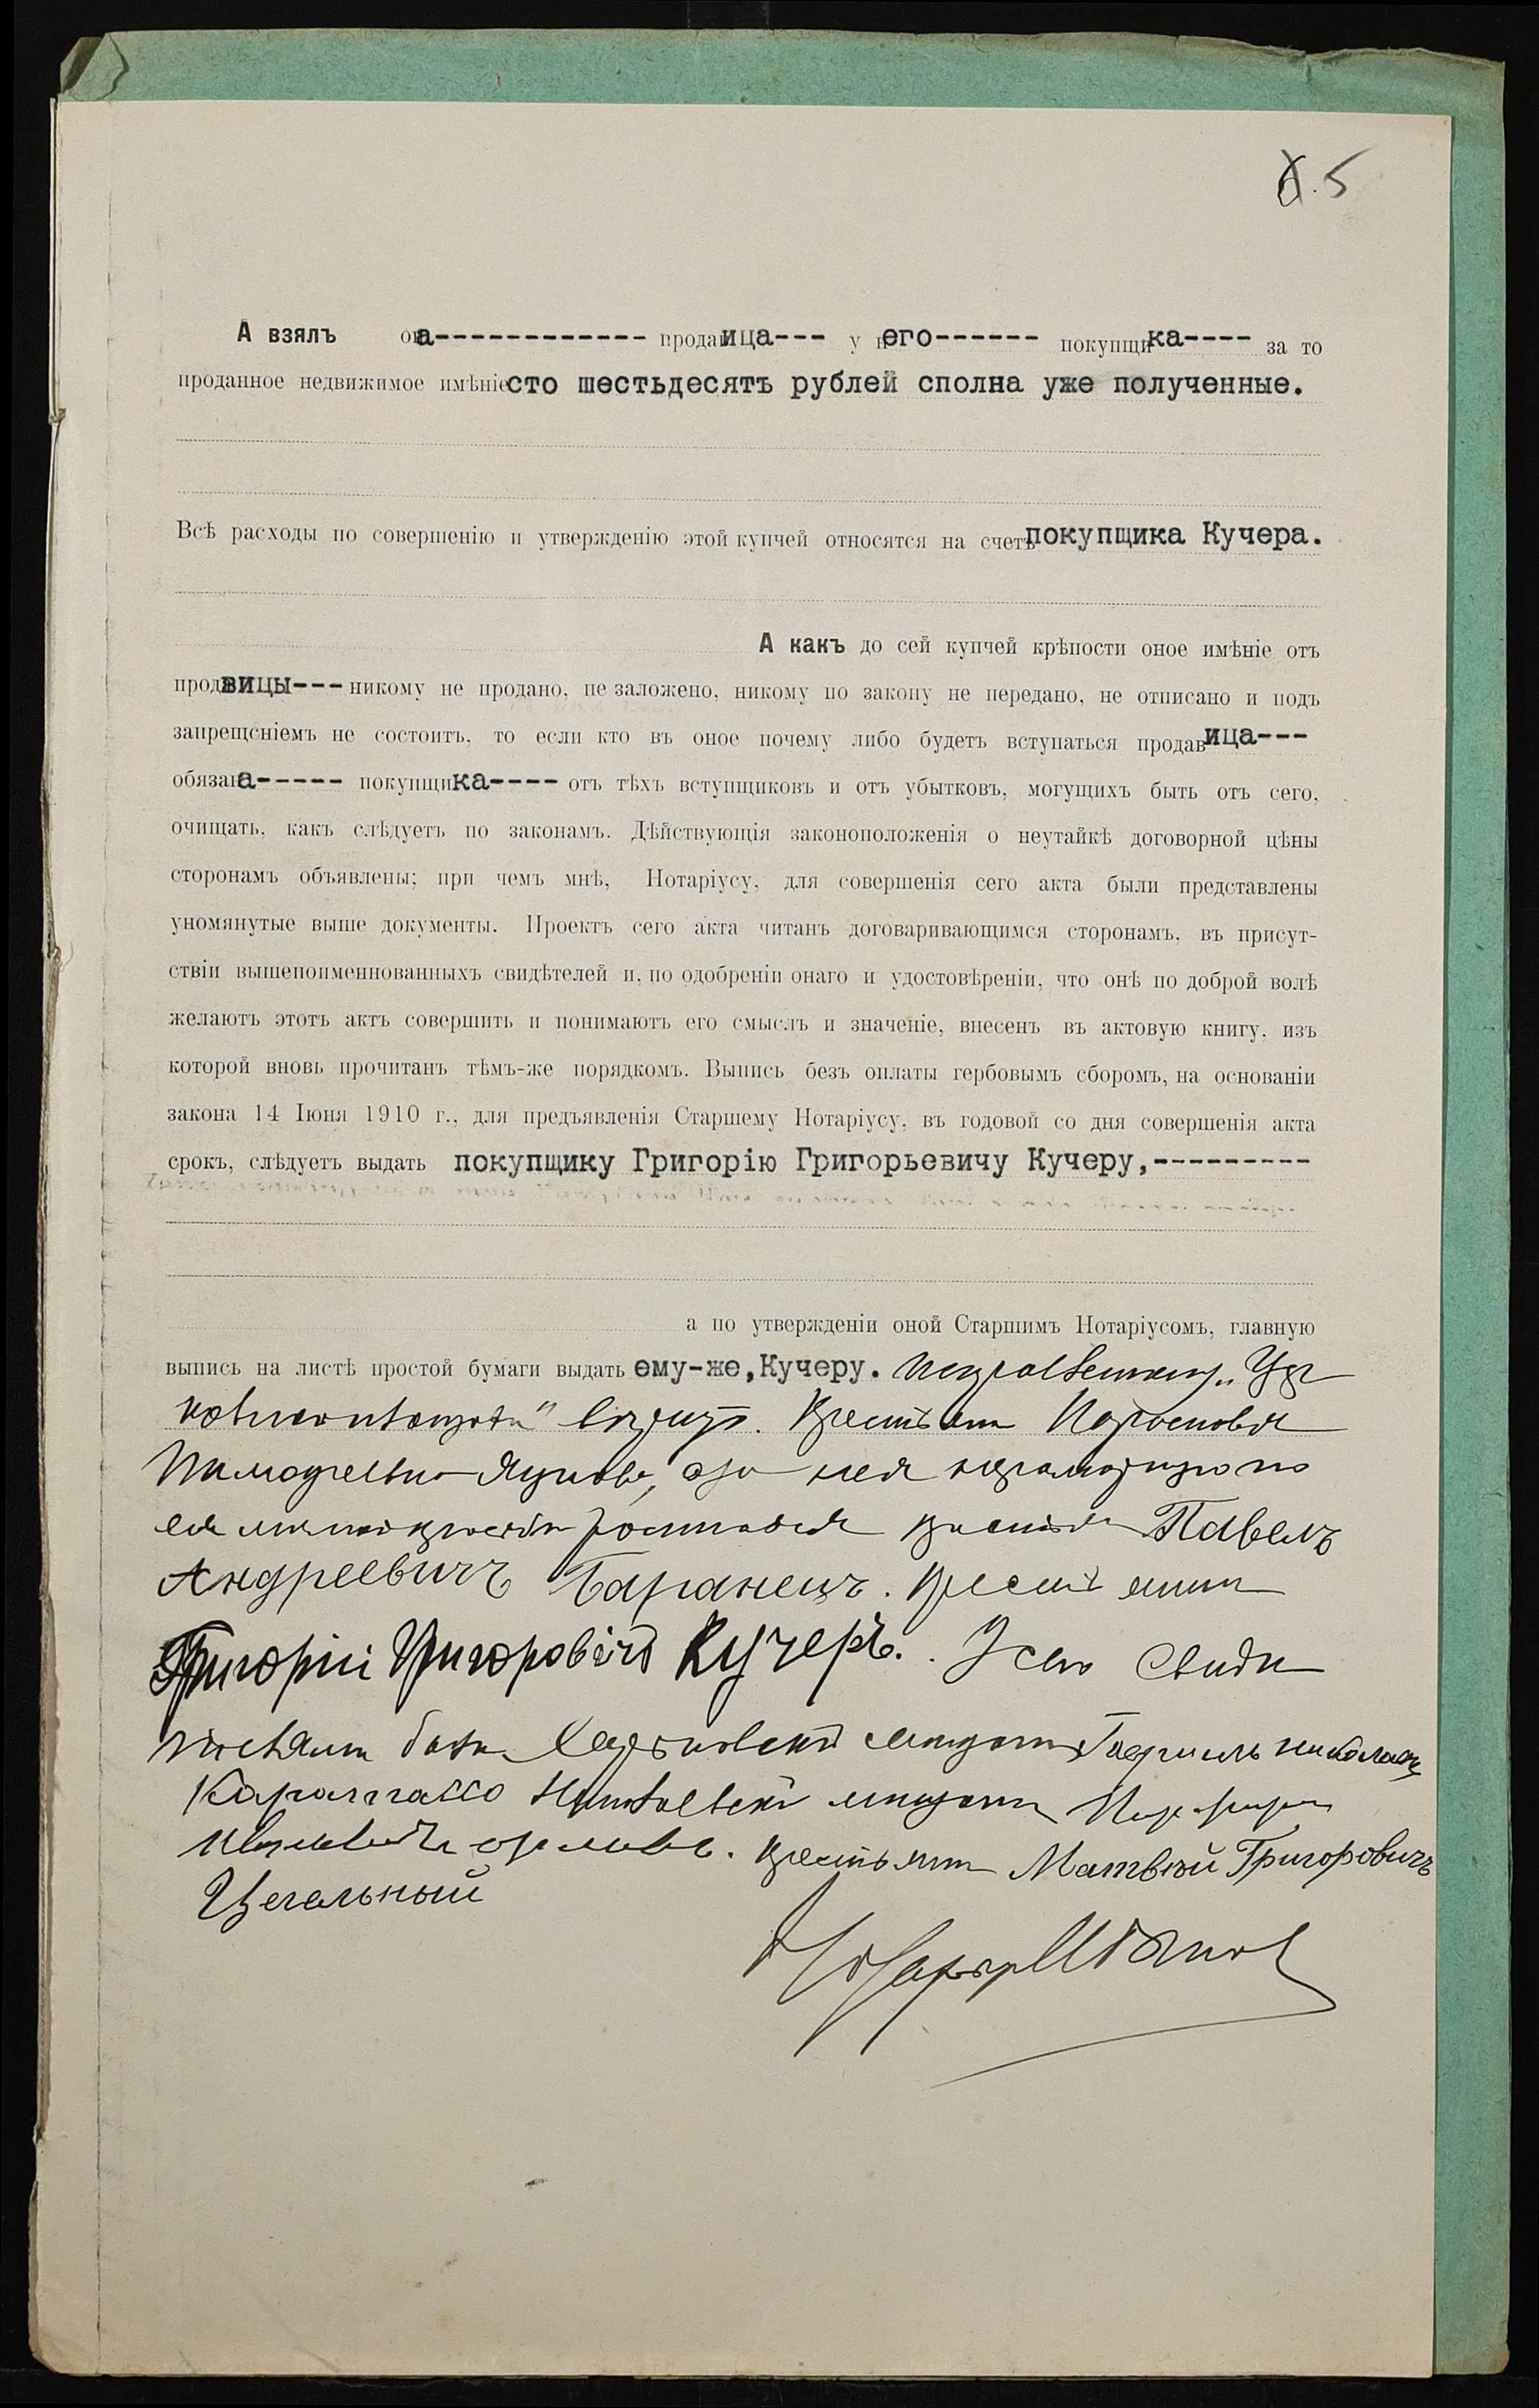 5
А взялъ она------------ продавица--- у него------ покупщика---- за то
проданное недвижимое имѣніе сто шестьдесятъ рублей сполна уже полученные.
Всѣ расходы по совершенію и утвержденію этой купчей относятся на счетъ покупщика Кучера.
А какъ до сей купчей крѣпости оное имѣніе отъ
продавицы--- никому не продано, не заложено, никому по закону не передано, не отписано и подъ
запрещеніемъ не состоитъ, то если кто въ оное почему либо будетъ вступаться продавица---
обязана----- покупщика---- отъ тѣхъ вступщиковъ и отъ убытковъ, могущихъ быть отъ сего,
очищать, какъ слѣдуетъ по законамъ. Дѣйствующія законоположенія о неутайкѣ договорной цѣны
сторонамъ объявлены; при чемъ мнѣ, Нотаріусу, для совершенія сего акта были представлены
упомянутые выше документы. Проектъ сего акта читанъ договаривающимся сторонамъ, въ присут-
ствіи вышепоименнованныхъ свидѣтелей и, по одобреніи онаго и удостовѣреніи, что онѣ по доброй волѣ
желаютъ этотъ актъ совершить и понимаютъ его смыслъ и значеніе, внесенъ въ актовую книгу, изъ
которой вновь прочитанъ тѣмъ-же порядкомъ. Выпись безъ оплаты гербовымъ сборомъ, на основаніи
закона 14 Іюня 1910 г., для предъявленія Старшему Нотаріусу, въ годовой со дня совершенія акта
срокъ, слѣдуетъ выдать покупщику Григорію Григорьевичу Кучеру,---------
а по утвержденіи оной Старшимъ Нотаріусомъ, главную
выпись на листѣ простой бумаги выдать ему-же, Кучеру.
Крестьянка
а за нея неграмотную по
ея росписался Павелъ
Андреевичъ Баранецъ. Крестьянинъ
Григорій Григоровичъ Кучеръ. У сего свидѣ
были Харьковскій мѣщанинъ Гавріилъ
мѣщанинъ
крестьянинъ Матвѣй Григоровичъ
Цегельный